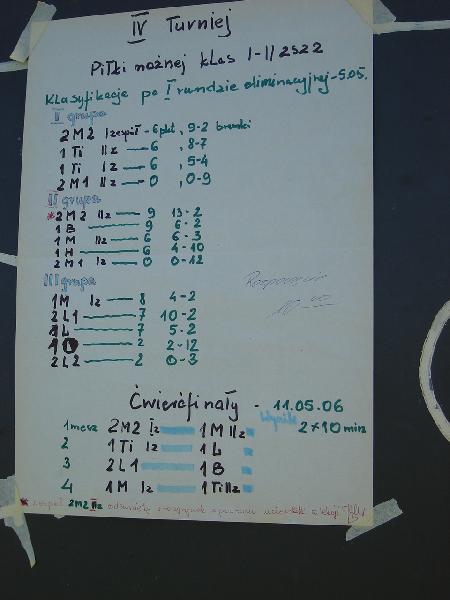 IV Turniej
Piłki nożnej klas I-II ZSZZ
Klasyfikacje po I rundzie eliminacyjnej - 5.05.
I grupa
2M2 I zespół - 6 pkt, 9-2 bramki
1Ti IIz — 6, 8-7
1Ti Iz — 6, 5-4
2M1 IIz — 0, 0-9
II grupa
*2M2 IIz — 9 13-2
1B — 9 6-2
1M IIz — 6 6-3
1H — 6 4-10
2M1 Iz — 0 0-12
III grupa
1M Iz — 8 4-2
2L1 — 7 10-2
1L — 7 5-2
— 2 2-12
2L2 — 2 0-3
Rozpoczęcie
10:00
Ćwierćfinały - 11.05.06
Wyniki 2x10 min
1 mecz 2M2 Iz 1M IIz
2 1Ti Iz 1L
3 2L1 1B
4 1M Iz 1Ti IIz
* zespół 2M2 IIz z powodu